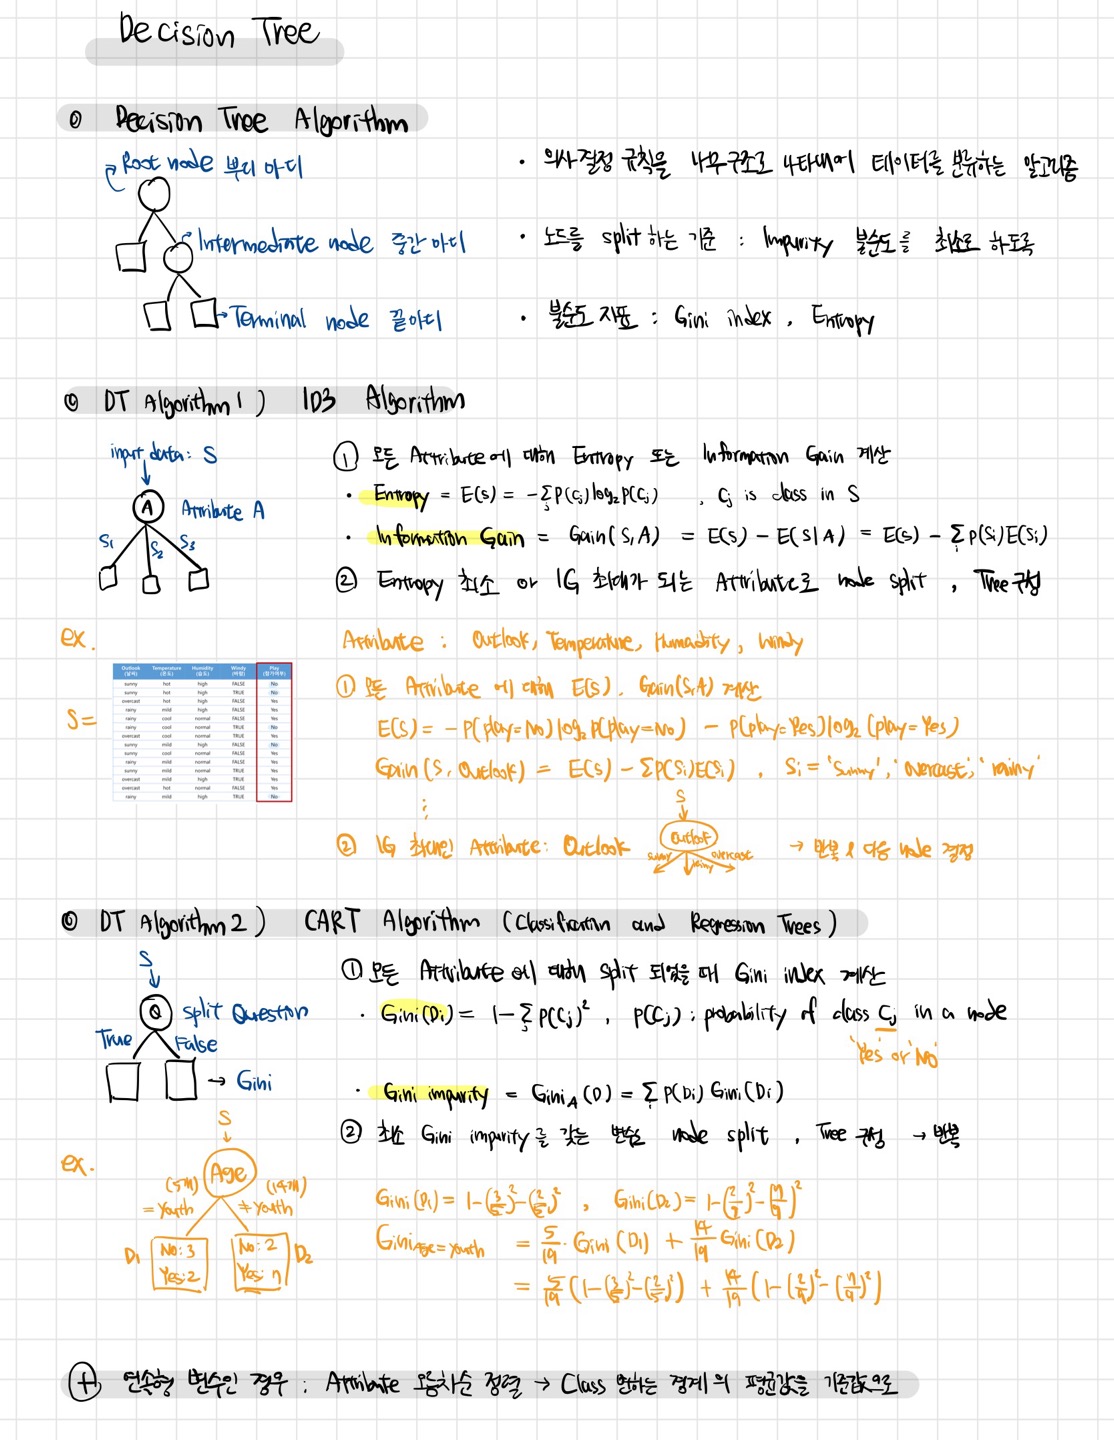 Decision Tree
Decision Tree Algorithm
Root node 뿌리 마디
Intermediate node 중간 마디
Terminal node 끝마디
· 의사결정 규칙을 나무구조로 나타내어 데이터를 분류하는 알고리즘
· 노드를 split 하는 기준 : Impurity 불순도를 최소로 하도록
· 불순도 지표 : Gini index , Entropy
DT Algorithm 1 ) ID3 Algorithm
input data : S
A Attribute A
S₁ S₂ S₃
① 모든 Attribute에 대해 Entropy 또는 Information Gain 계산
· Entropy = E(S) = -Σj P(Cj) log₂ P(Cj) , Cj is class in S
· Information Gain = Gain(S, A) = E(S) - E(S|A) = E(S) - Σi P(Si)E(Si)
② Entropy 최소 or IG 최대가 되는 Attribute로 node split , Tree 구성
ex.
S =
Outlook (날씨) Temperature (온도) Humidity (습도) Windy (바람) Play (참가여부)
sunny hot high FALSE No
sunny hot high TRUE No
overcast hot high FALSE Yes
rainy mild high FALSE Yes
rainy cool normal FALSE Yes
rainy cool normal TRUE No
overcast cool normal TRUE Yes
sunny mild high FALSE No
sunny cool normal FALSE Yes
rainy mild normal FALSE Yes
sunny mild normal TRUE Yes
overcast mild high TRUE Yes
overcast hot normal FALSE Yes
rainy mild high TRUE No
Attribute : Outlook, Temperature, Humidity, Windy
① 모든 Attribute 에 대해 E(S), Gain(S,A) 계산
E(S) = - P(play=No) log₂ P(play=No) - P(play=Yes) log₂ (play=Yes)
Gain (S, Outlook) = E(S) - ΣP(Si)E(Si) , Si = 'Sunny', 'overcast', 'rainy'
⋮
② IG 최대인 Attribute : Outlook
S
Outlook
sunny rainy overcast
→ 반복 & 다음 node 결정
DT Algorithm 2 ) CART Algorithm (Classification and Regression Trees)
S
Q split Question
True False
→ Gini
① 모든 Attribute 에 대해 split 되었을 때 Gini index 계산
· Gini(Di) = 1 - Σj P(Cj)² , P(Cj) : probability of class Cj in a node
'Yes' or 'No'
· Gini impurity = GiniA(D) = Σi P(Di) Gini(Di)
② 최소 Gini impurity를 갖는 변수로 node split , Tree 구성 → 반복
ex.
S
Age
(5개) = Youth
(14개) ≠ Youth
D₁ No: 3 Yes: 2
No: 2 Yes: 7 D₂
Gini(D₁) = 1-(3/5)²-(2/5)² , Gini(D₂) = 1-(2/9)²-(7/9)²
Gini Age=youth = 5/19 · Gini(D₁) + 14/19 Gini(D₂)
= 5/19 (1-(3/5)²-(2/5)²) + 14/19 (1-(2/9)²-(7/9)²)
⊕ 연속형 변수인 경우 : Attribute 오름차순 정렬 → Class 변하는 경계의 평균값을 기준값으로